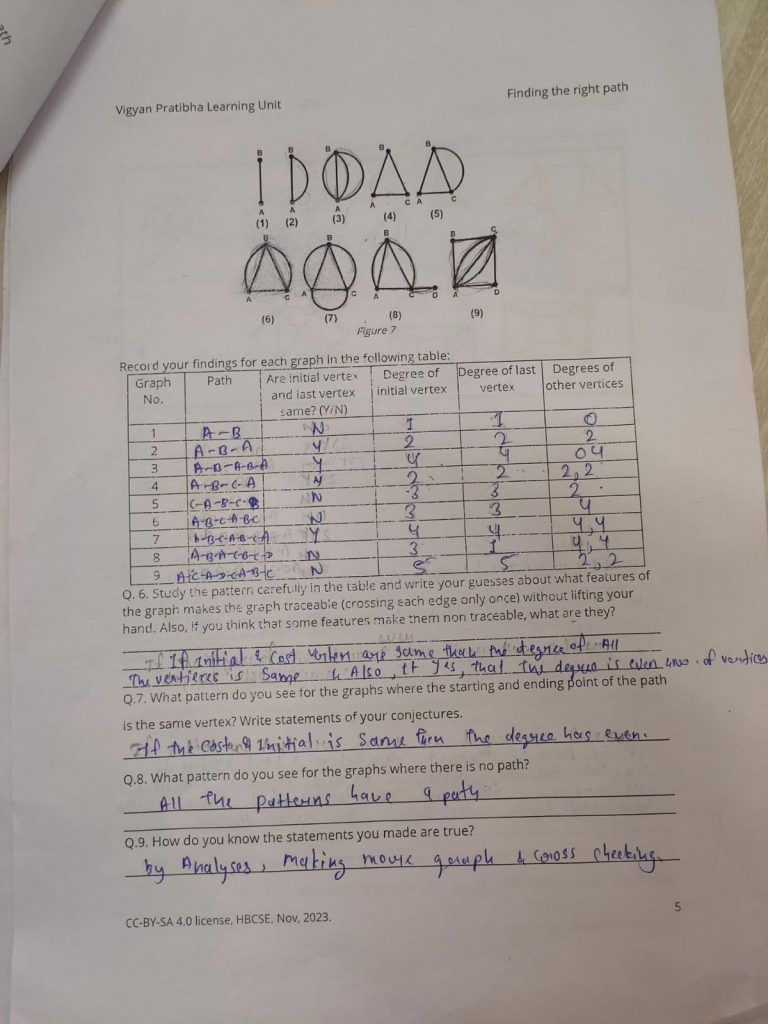 Vigyan Pratibha Learning Unit
Finding the right path
B B B B B
A A A A C A C
(1) (2) (3) (4) (5)
B B B B C
A C A C A C D A D
(6) (7) (8) (9)
Figure 7
Record your findings for each graph in the following table:
Graph No. Path Are initial vertex and last vertex same? (Y/N) Degree of initial vertex Degree of last vertex Degrees of other vertices
1 A-B N 1 1 0
2 A-B-A Y 2 2 2
3 A-B-A-B-A Y 4 4 04
4 A-B-C-A 2 2 2,2
5 C-A-B-C-B N 3 3 2
6 A-B-C-A-B-C N 3 3 4
7 A-B-C-A-B-C-A Y 4 4 4,4
8 A-B-A-C-B-C-D N 3 1 4,4
9 A-C-A-D-C-A-B-C N 5 5 2,2
Q. 6. Study the pattern carefully in the table and write your guesses about what features of
the graph makes the graph traceable (crossing each edge only once) without lifting your
hand. Also, if you think that some features make them non traceable, what are they?
If initial & are same than the degree of All
The is same & Also, if Yes, that the degree is even of
Q.7. What pattern do you see for the graphs where the starting and ending point of the path
is the same vertex? Write statements of your conjectures.
If the & Initial is same then the degree has even.
Q.8. What pattern do you see for the graphs where there is no path?
All the patterns have a path
Q.9. How do you know the statements you made are true?
by Analyses, making graph & cross checking.
CC-BY-SA 4.0 license, HBCSE. Nov, 2023.
5